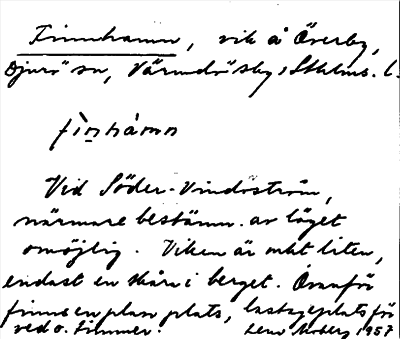 Finnhamn, vik å Överby,
Djurö sn, Värmdö sky, Sthlms. l.
fìnhámn
Vid Söder-Vindöström,
närmare bestämn. av läget
omöjlig. Viken är mkt liten,
endast en skåra i berget. Ovanför
finns en plan plats, lastageplats för
ved o. timmer. 1957